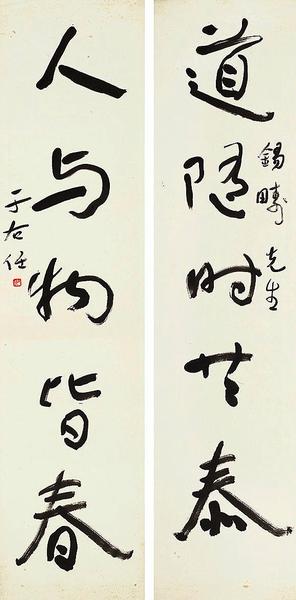 道随时共泰
锡畴先生
人与物皆春
于右任